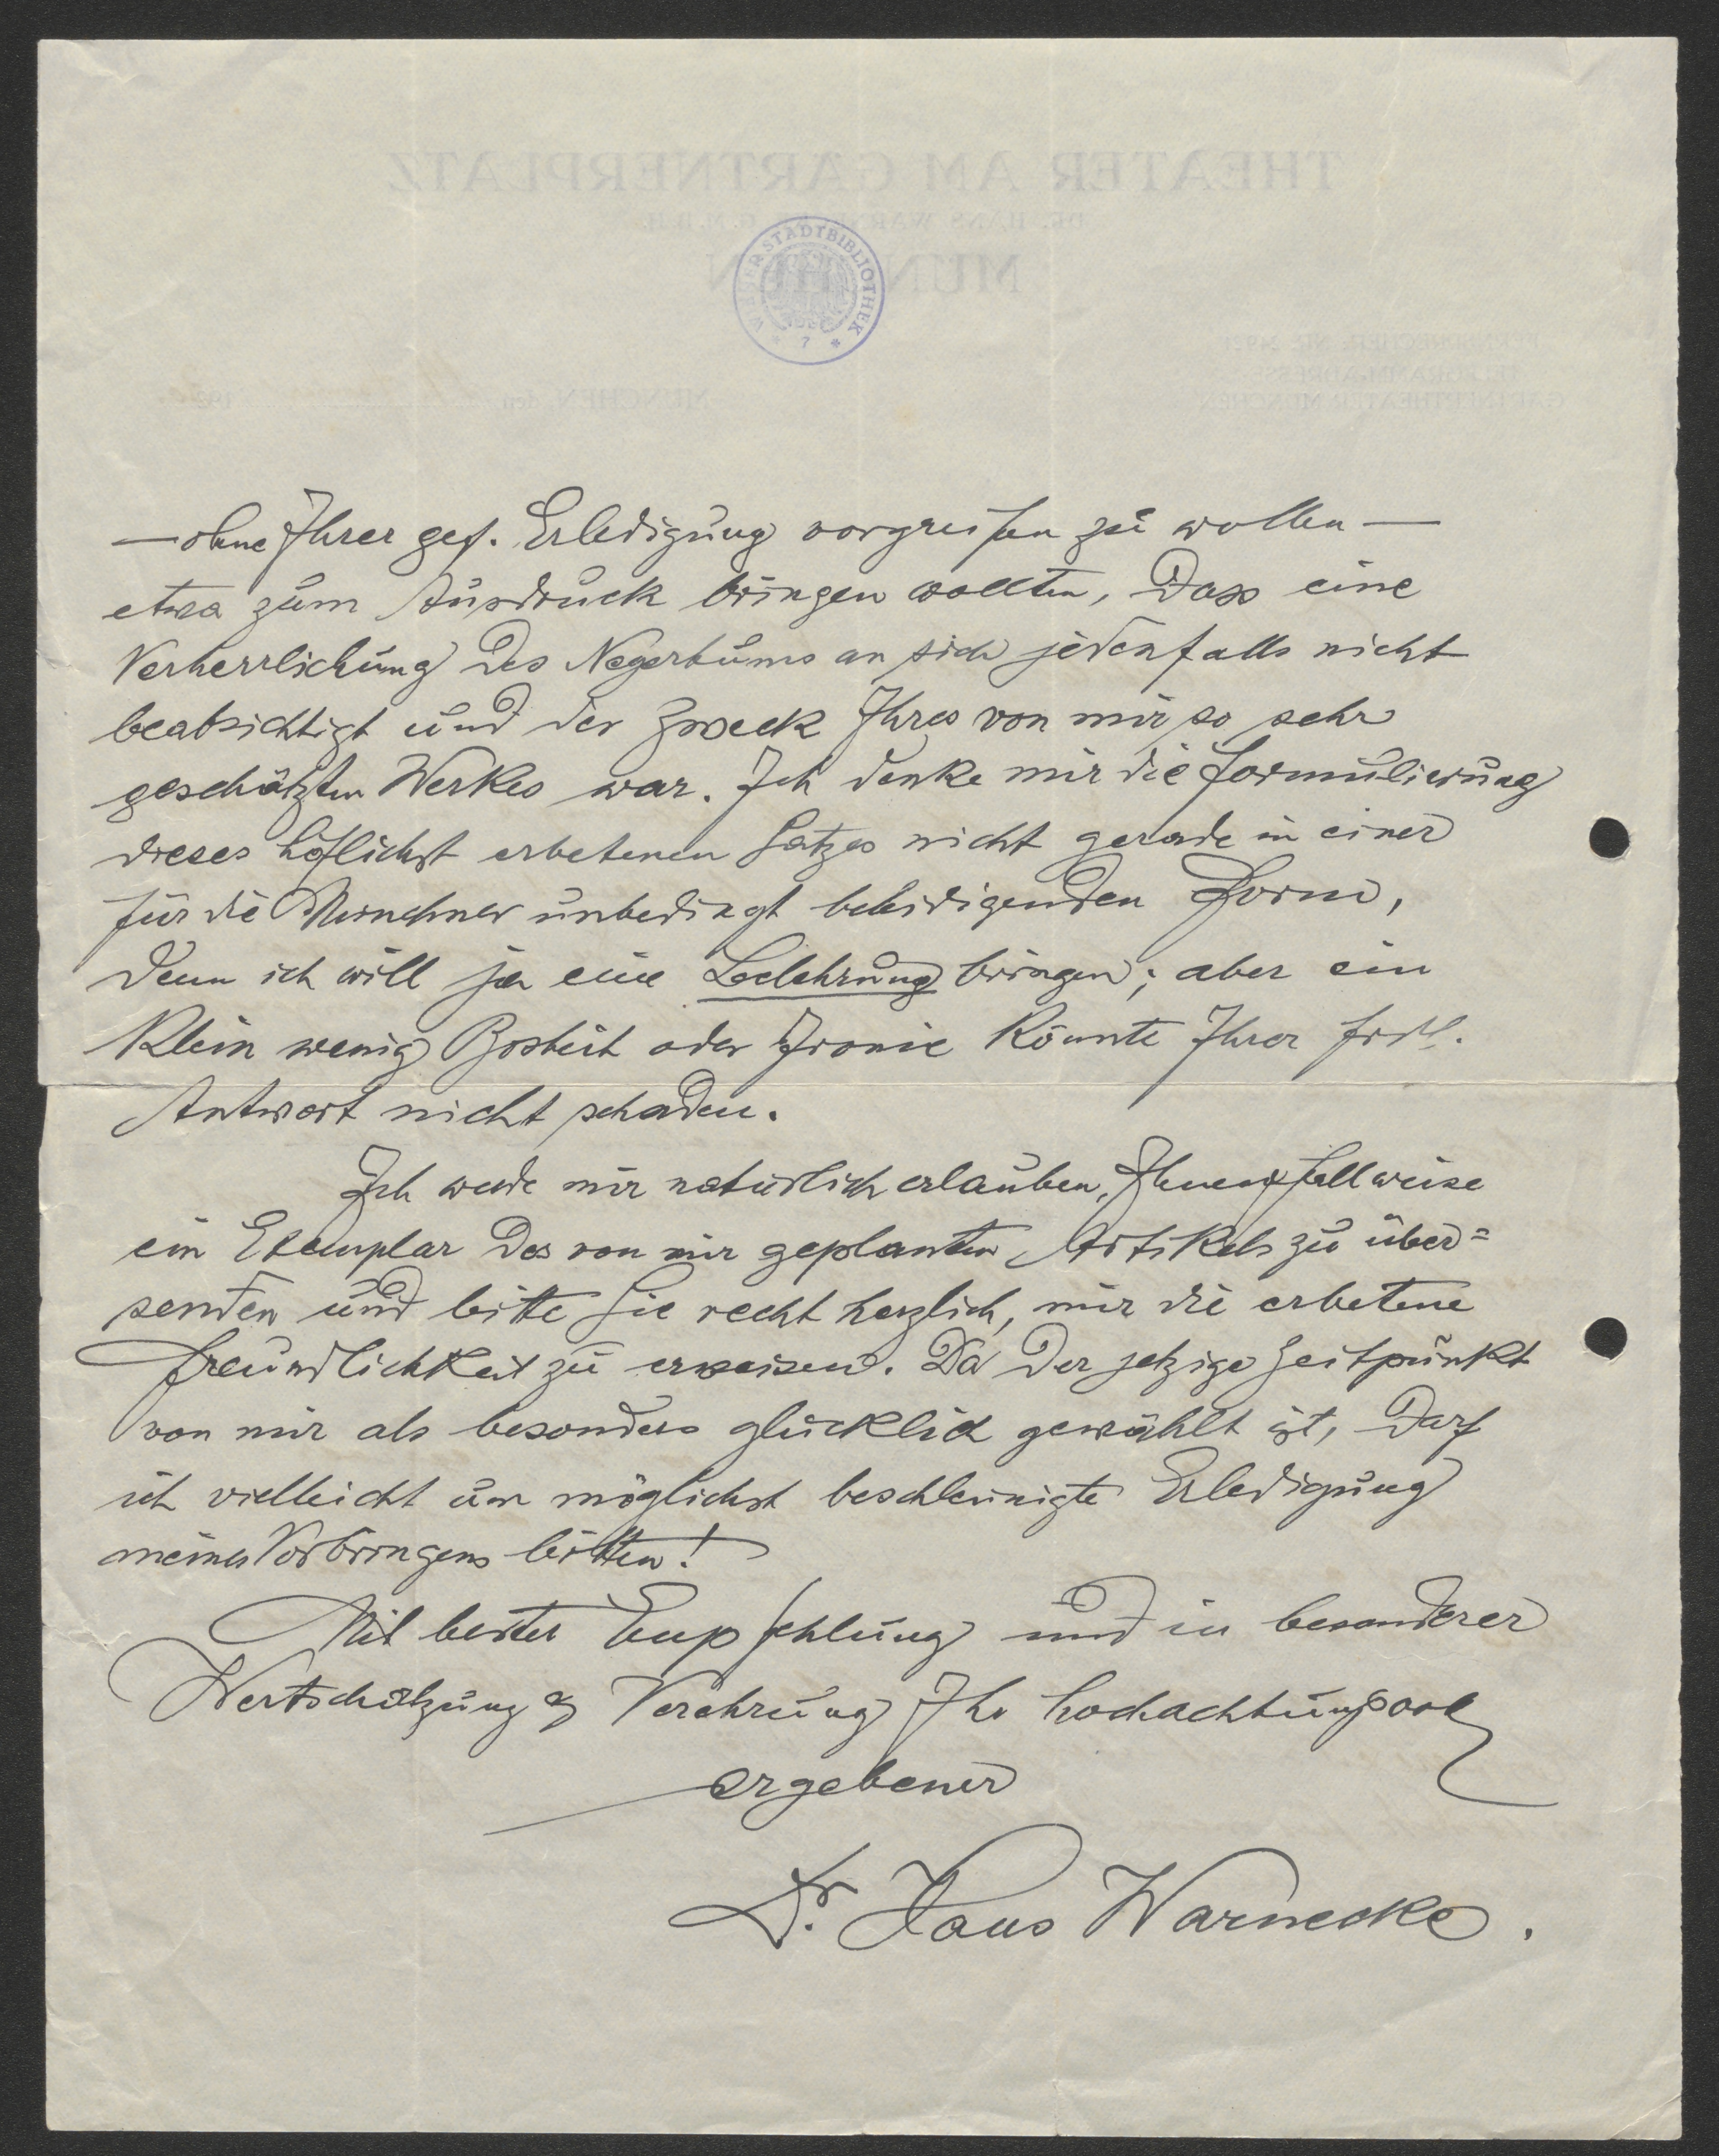 THEATER AM GÄRTNERPLATZ
DR. HANS WARNECKE G.M.B.H.
MÜNCHEN
WIENER STADTBIBLIOTHEK
* 7 *
TELEGRAMM-ADRESSE:
GÄRTNERTHEATER MÜNCHEN
MÜNCHEN, den 192
— ohne Ihrer gef. Erledigung vorgreifen zu wollen —
etwa zum Ausdruck bringen wollten, dass eine
Verherrlichung des Negertums an sich jedenfalls nicht
beabsichtigt und der Zweck Ihres von mir so sehr
geschätzten Werkes war. Ich denke mir die Formulierung
dieses höflichst erbetenen Satzes nicht gerade in einer
für die Münchner unbedingt beleidigenden Form,
denn ich will ja eine Belehrung bringen; aber ein
klein wenig Bosheit oder Ironie könnte Ihrer frdl.
Antwort nicht schaden.
Ich werde mir natürlich erlauben, Ihnen fallweise
ein Exemplar des von mir geplanten Artikels zu über=
senden und bitte Sie recht herzlich, mir die erbetene
Freundlichkeit zu erweisen. Da der jetzige Zeitpunkt
von mir als besonders glücklich gewählt ist, darf
ich vielleicht um möglichst beschleunigte Erledigung
meines Vorbringens bitten!
Mit bester Empfehlung und in besonderer
Wertschätzung & Verehrung Ihr hochachtungsvoll
ergebener
Dr. Hans Warnecke.